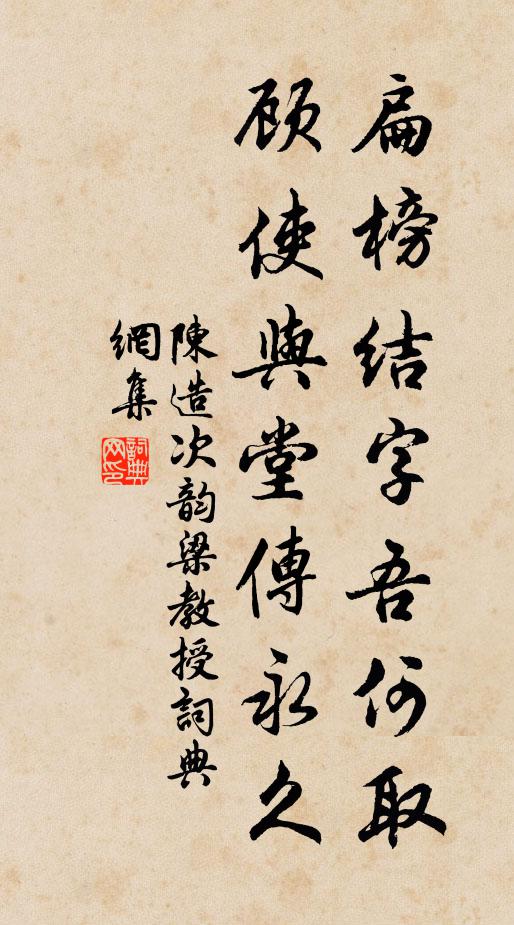 扁榜結字吾何取
顾使與堂傳永久
陳造次韵梁教授詞典
網集
詞典网印